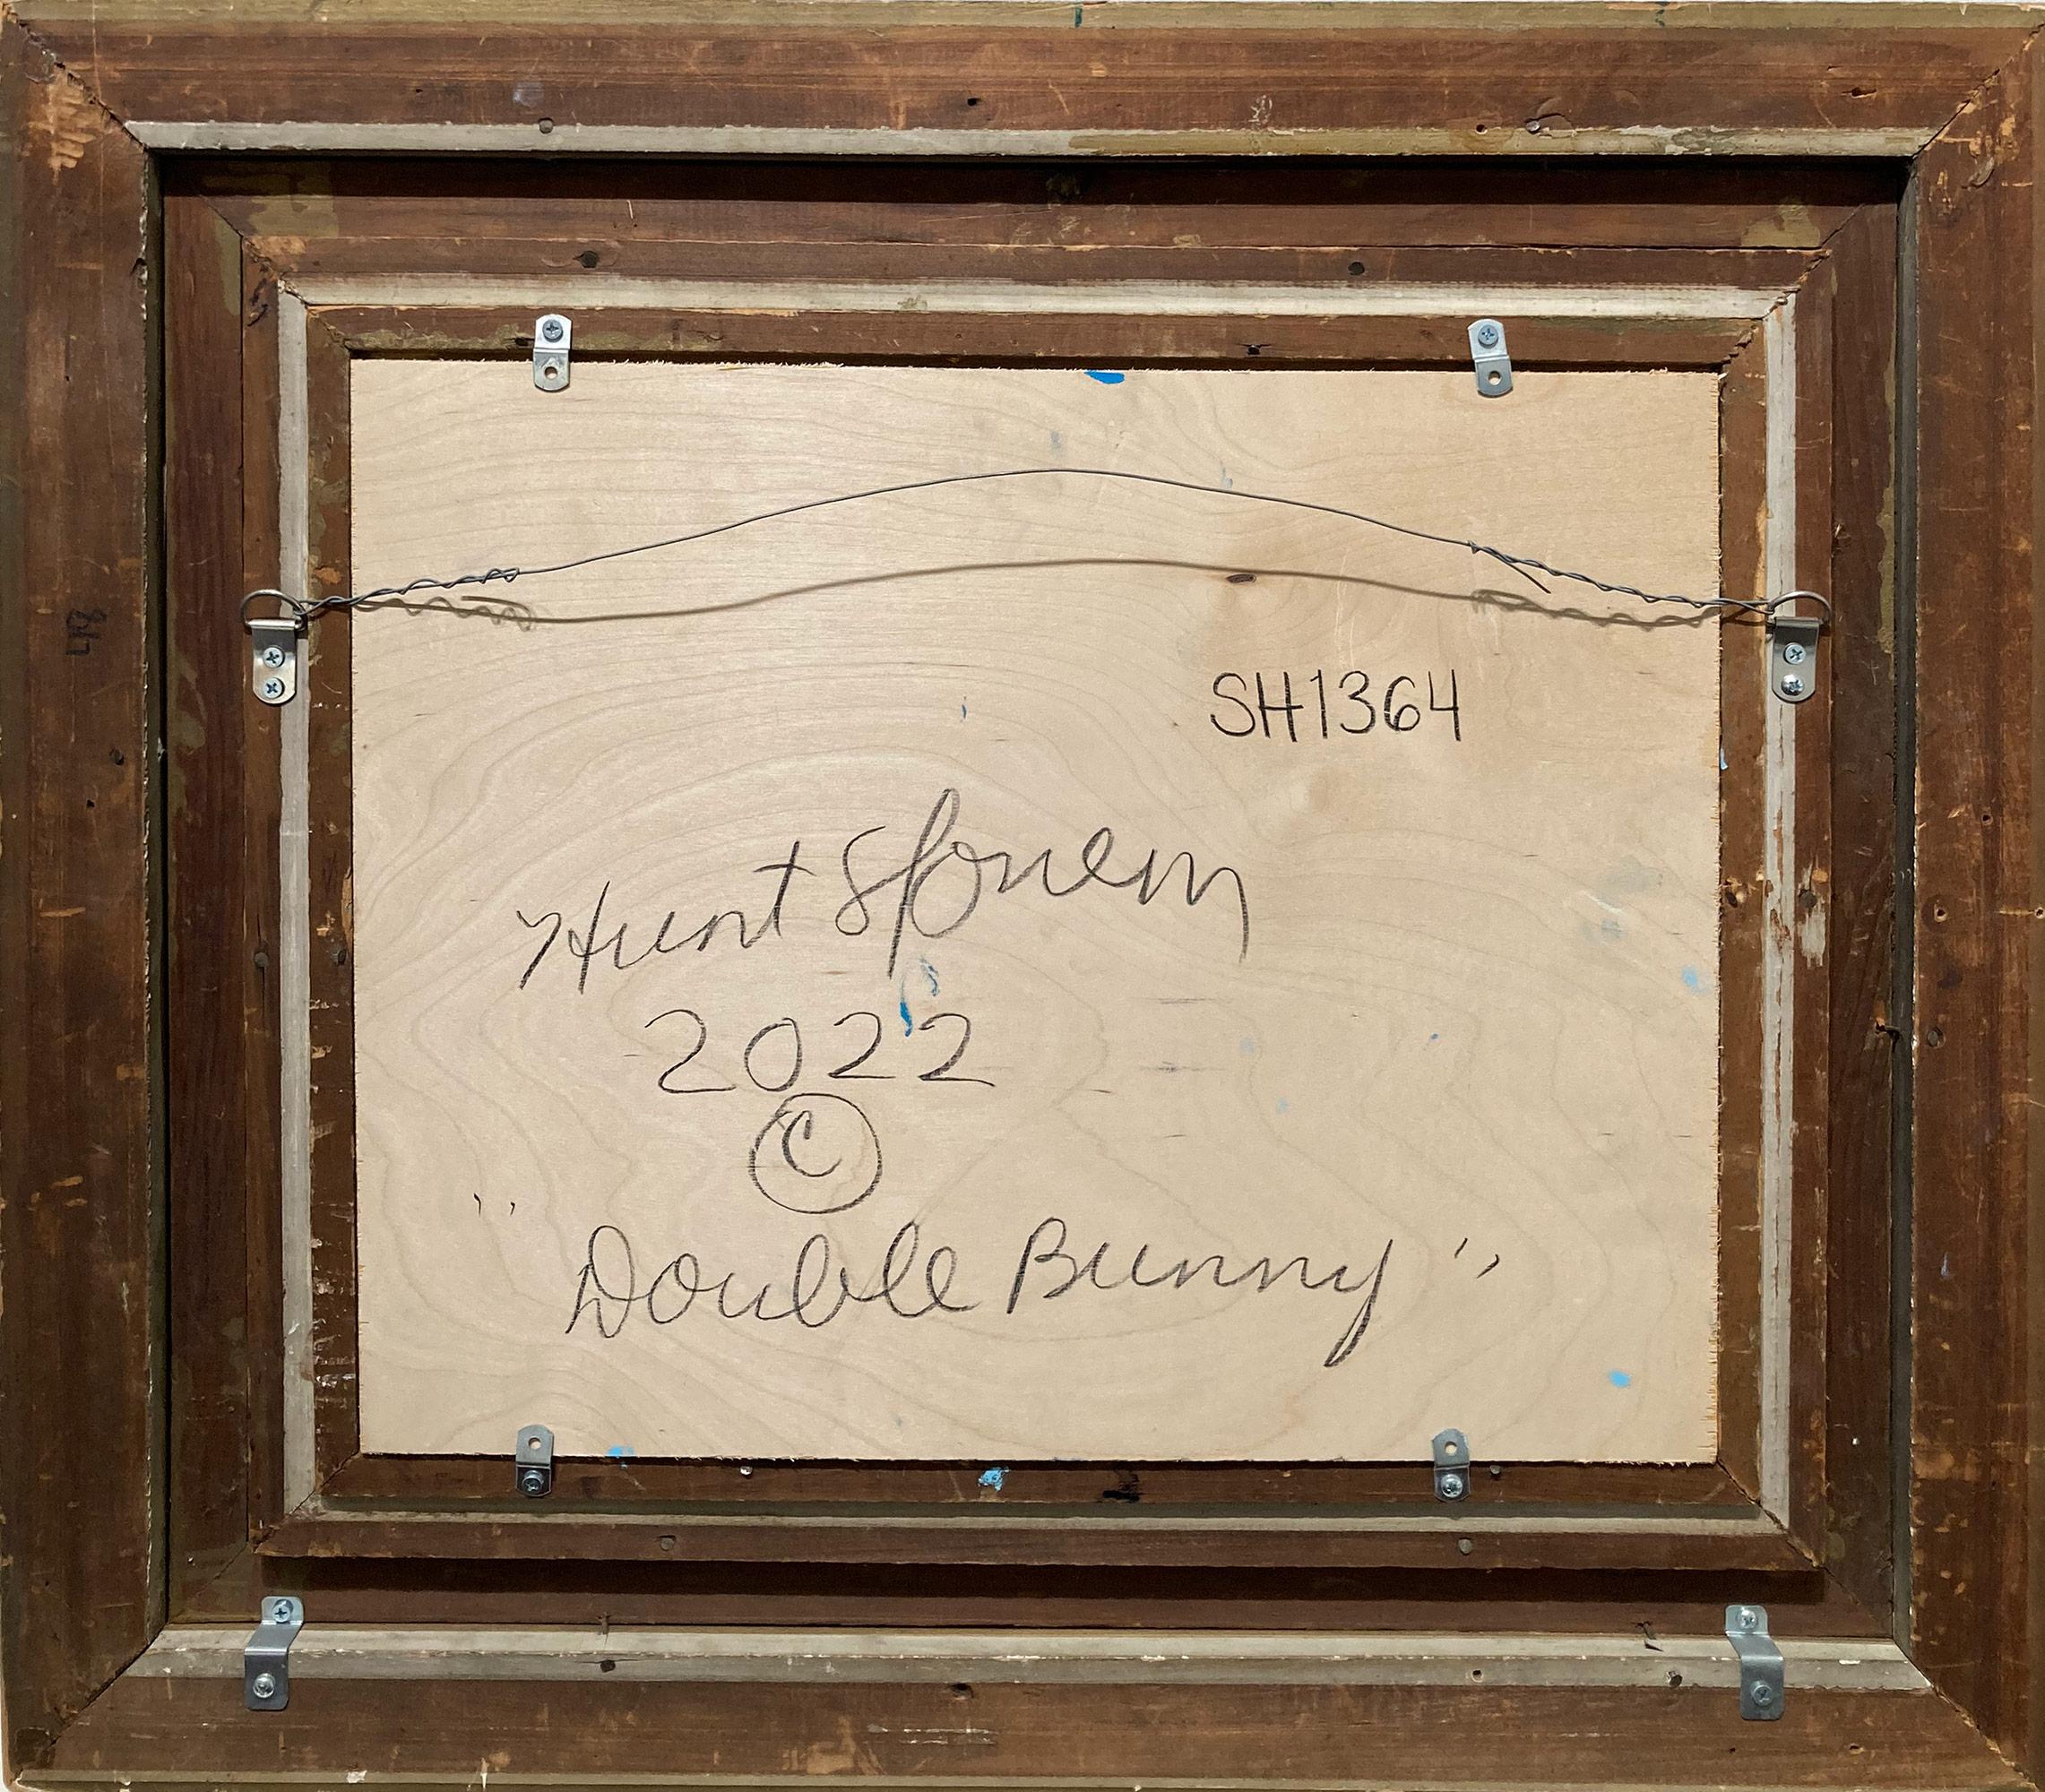 SH1364
Hunt Slonem
2022
©
"Double Bunny"